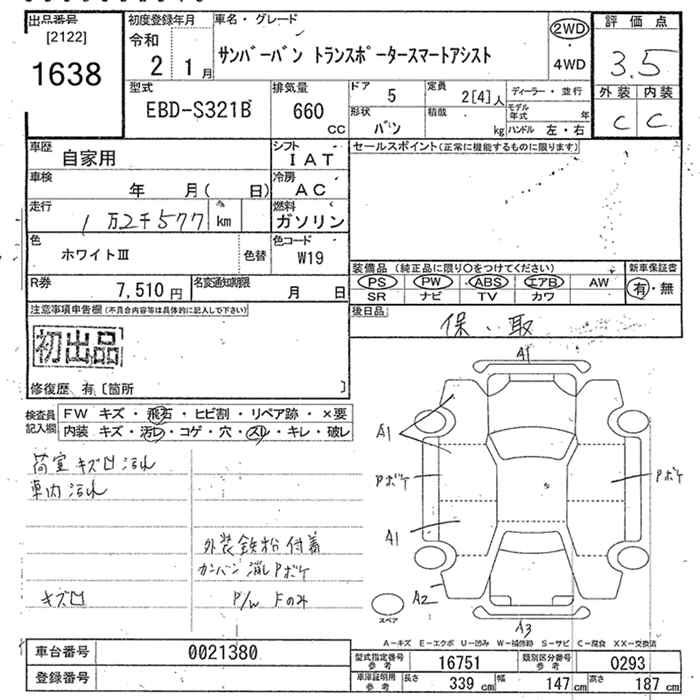 出品番号
[2122]
1638
初度登録年月
令和
2 1月
車名・グレード
サンバーバン トランスポータースマートアシスト
2WD
4WD
評価点
3.5
外装 内装
C C
型式
EBD-S321B
排気量
660
CC
ドア
5
定員
2[4]人
ディーラー・並行
形状
バン
積載
kg
モデル年式 年
ハンドル 左・右
車歴
自家用
シフト
IAT
セールスポイント(正常に機能するものに限ります)
車検
年 月( 日)
冷房
AC
走行
1万2千577 km
燃料
ガソリン
色
ホワイトⅢ
色替
色コード
W19
装備品(純正品に限り○をつけてください)
PS PW ABS エアB AW
SR ナビ TV カワ
新車保証書
有・無
R券
7,510円
名変通知期限
月 日
後日品
保、取
注意事項申告欄(不具合内容等は具体的に記入して下さい)
初出品
修復歴 有〔箇所 〕
検査員記入欄
FW キズ・飛石・ヒビ割・リペア跡・×要
内装 キズ・汚レ・コゲ・穴・スレ・キレ・破レ
荷室キズ凹汚れ
車内汚れ
外装鉄粉付着
カンバン消しPボケ
キズ凹
P/W Fのみ
A1
A1
Pボケ
Pボケ
A1
A2
A3
スペア
A-キズ E-エクボ U-凹み W-補修跡 S-サビ C-腐食 XX-交換済
車台番号
0021380
登録番号
型式指定番号参考
16751
類別区分番号参考
0293
車庫証明用参考
長さ 339cm 幅 147cm 高さ 187cm